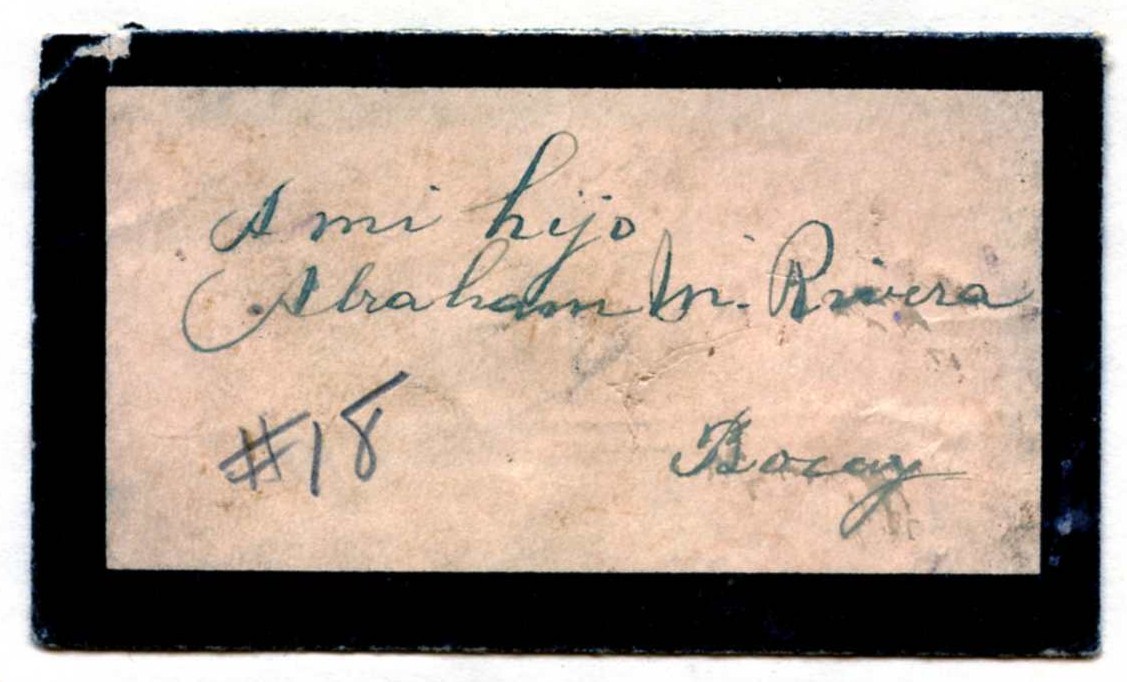 A mi hijo
Abraham M. Rivera
#18
Bocay